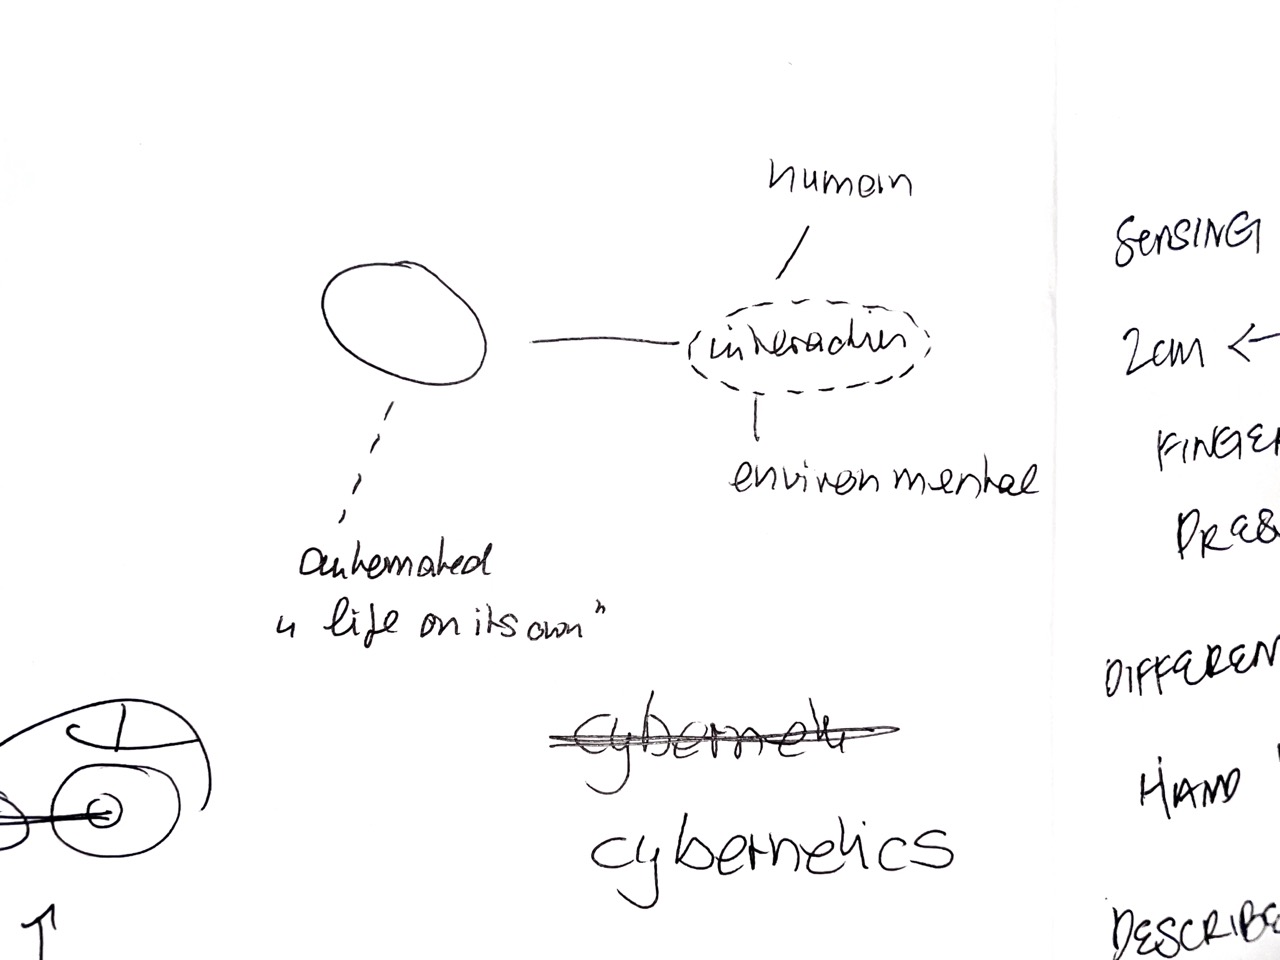 human
interaction
environmental
automated
„ life on its own"
cyberneti
cybernetics
SENSING
2cm ←
FINGER
PRES
DIFFEREN
HAND
DESCRIBE